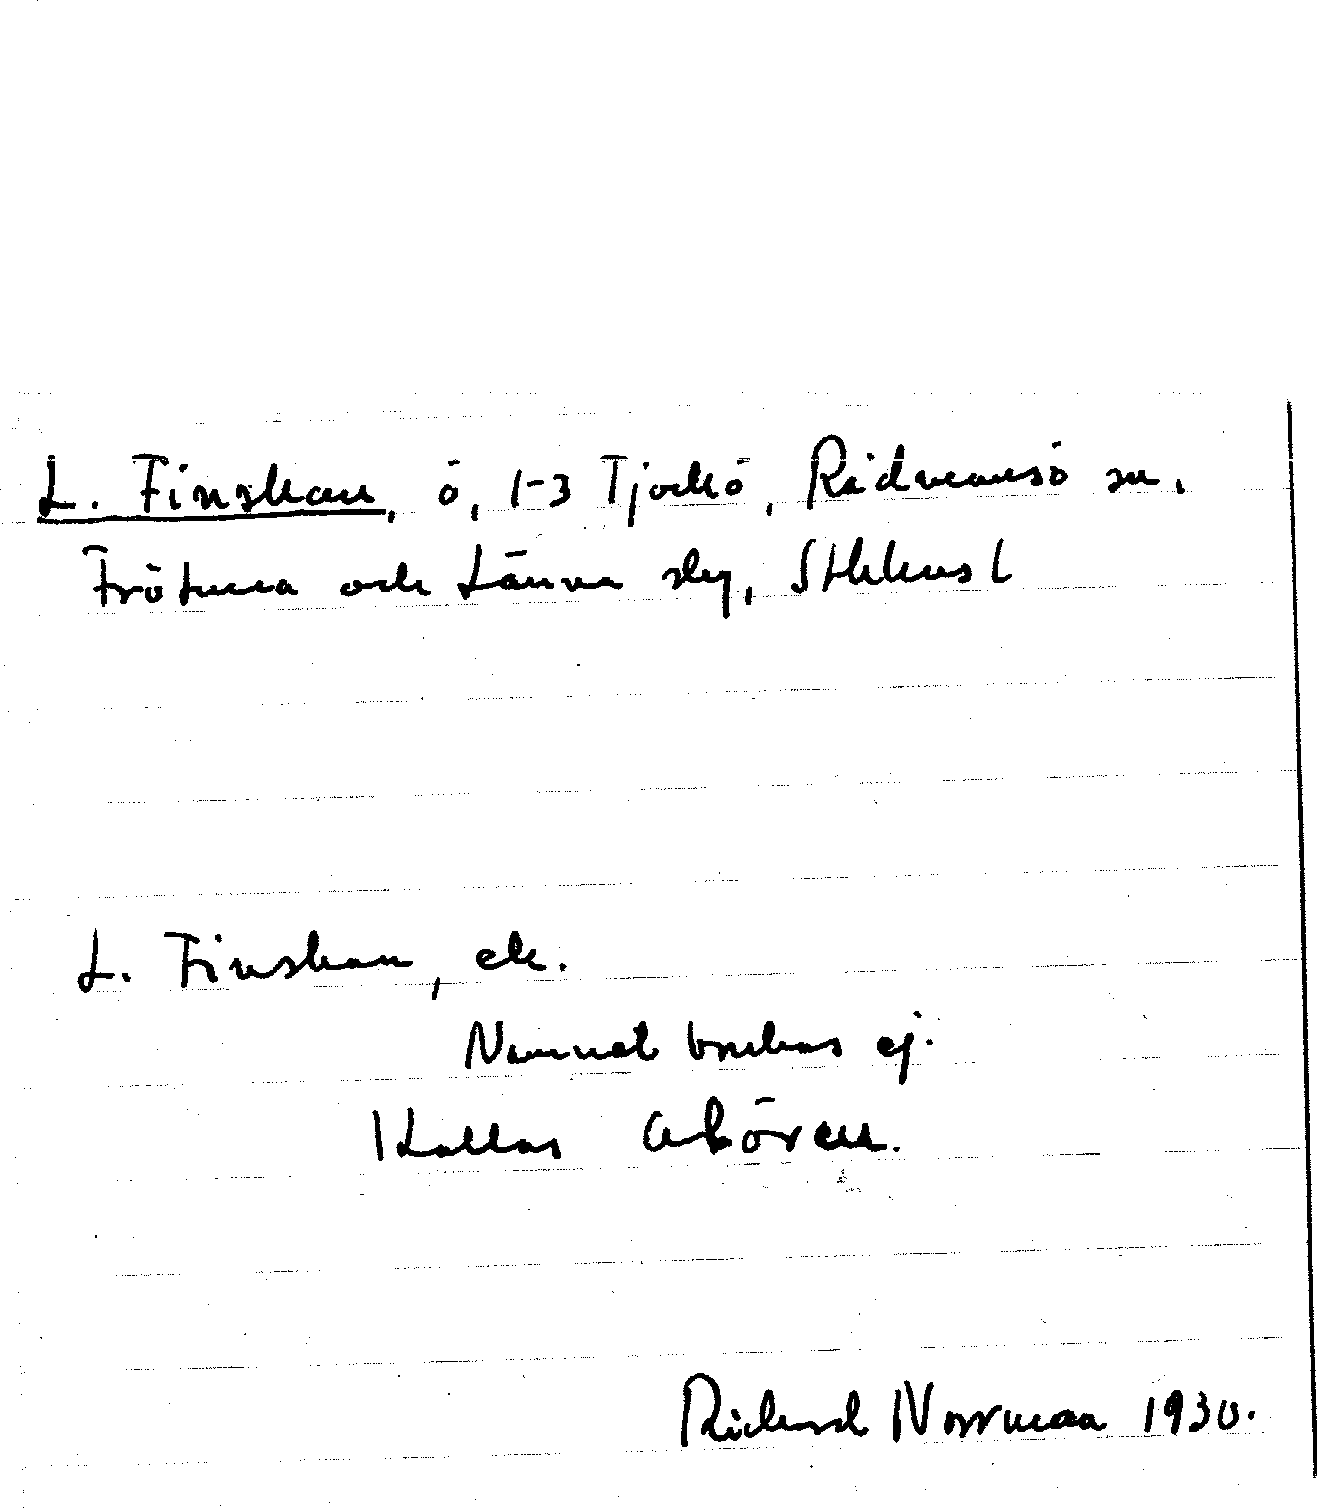 L. Finskan, ö, 1-3 Tjockö, Rådmansö sn,
Frötuna och Länna slg, Sthlms l
L. Finskan, ek.
Namnet brukas ej.
Kallas Abören.
Richard Norrman 1930.